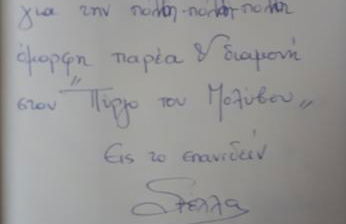 για την πολλη-πολλη-πολλη
όμορφη παρέα & διαμονή
στον "Πύργο του Μολύβου"
Εις το επανιδείν
Στέλλα